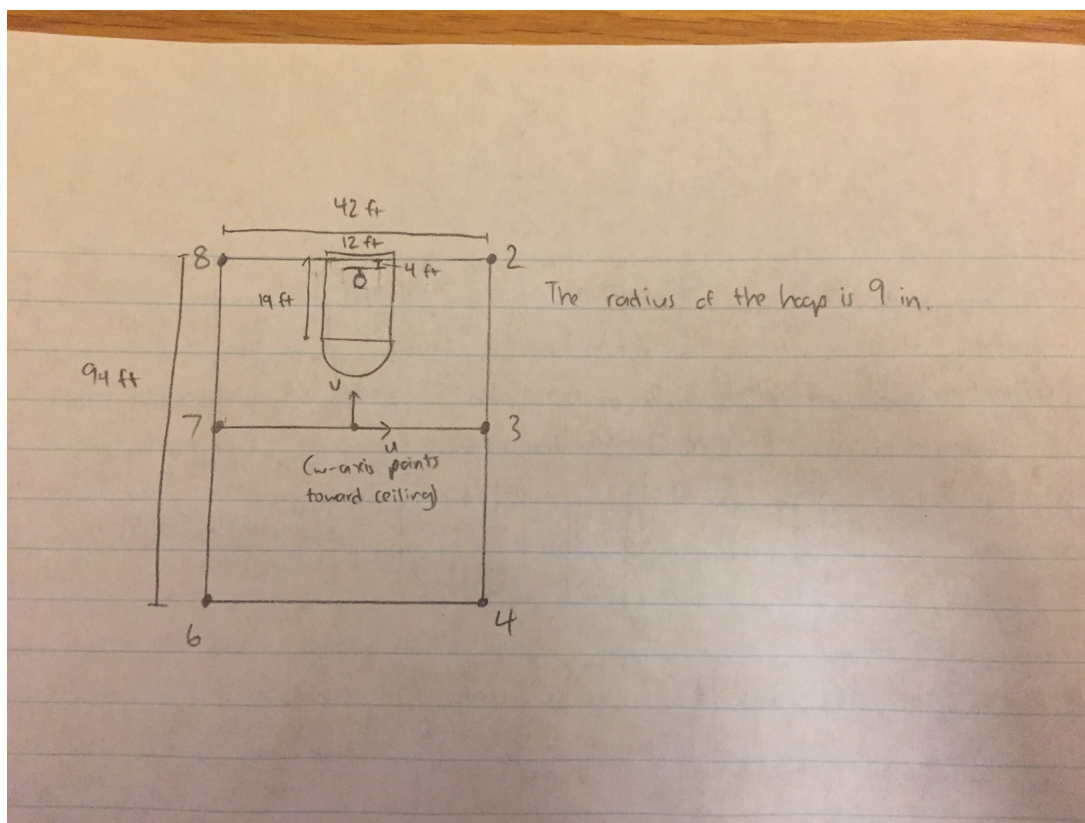 42 ft
12 ft
8
2
4 ft
19 ft
The radius of the hoop is 9 in.
94 ft
v
7
3
u
(w-axis points
toward ceiling)
6
4